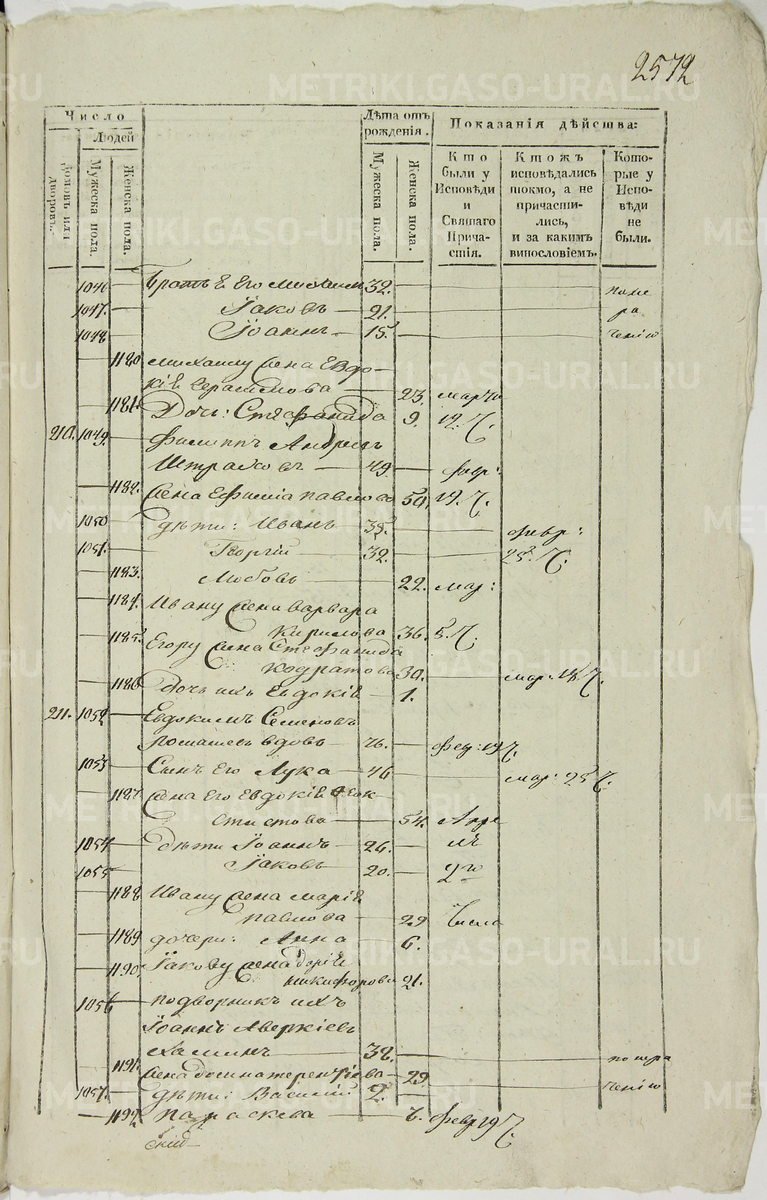 2572
METRIKI.GASO-URAL.RU
Число
Людей
Домовъ или дворовъ.
Мужеска пола.
Женска пола.
Лѣта отъ рожденія.
Мужеска пола.
Женска пола.
Показанія дѣйства:
Кто были у Исповѣди и Святаго Причастія.
Ктожъ исповѣдались токмо, а не причастились, и за какимъ винословіемъ.
Которые у Исповѣди не были.
1046 Его Михаилъ 32.
1047. Іаковъ 21.
1048 Іоаннъ 15
1180 Михаилу жена Евдо-
кія Герасимова 23. марта
1181. Дочь: Стефанида 9. 19. Ч.
210. 1049. Филиппъ Андреевъ
49 февр:
1182. жена Ефимія Павлова 50. 19. Ч.
1050 дѣти: Иванъ 35 февр:
1051. Георгій 32 25. Ч.
1183. Любовь 22. мар:
1184. Ивану жена Варвара
Кирилова 36. 5. Ч.
1185. Егору жена Стефанида
Кодратова 30. мар: 18 Ч.
1186 дочь ихъ Евдокія 1.
211. 1052 Евдокимъ Семеновъ
вдовъ 76. фев: 19 Ч.
1053 Сынъ Его Лука 46 мар: 25 Ч.
1187 жена Его Евдокія Феок-
стистова 54. Апре
1054 дѣти Іоаннъ 26. ля
1055 Іаковъ 20. 2го
1188 Ивану жена Марія
Павлова 29 Числа
1189 дочери: Анна 6.
1190. Іакову жена Дарія
Никифорова 21.
1056 подворникъ ихъ
Іоаннъ Аверкіевъ
38.
1191. жена Терентіева 29
1057. дѣти: Василій 2.
1192 Параскева 6. февр 19 Ч.